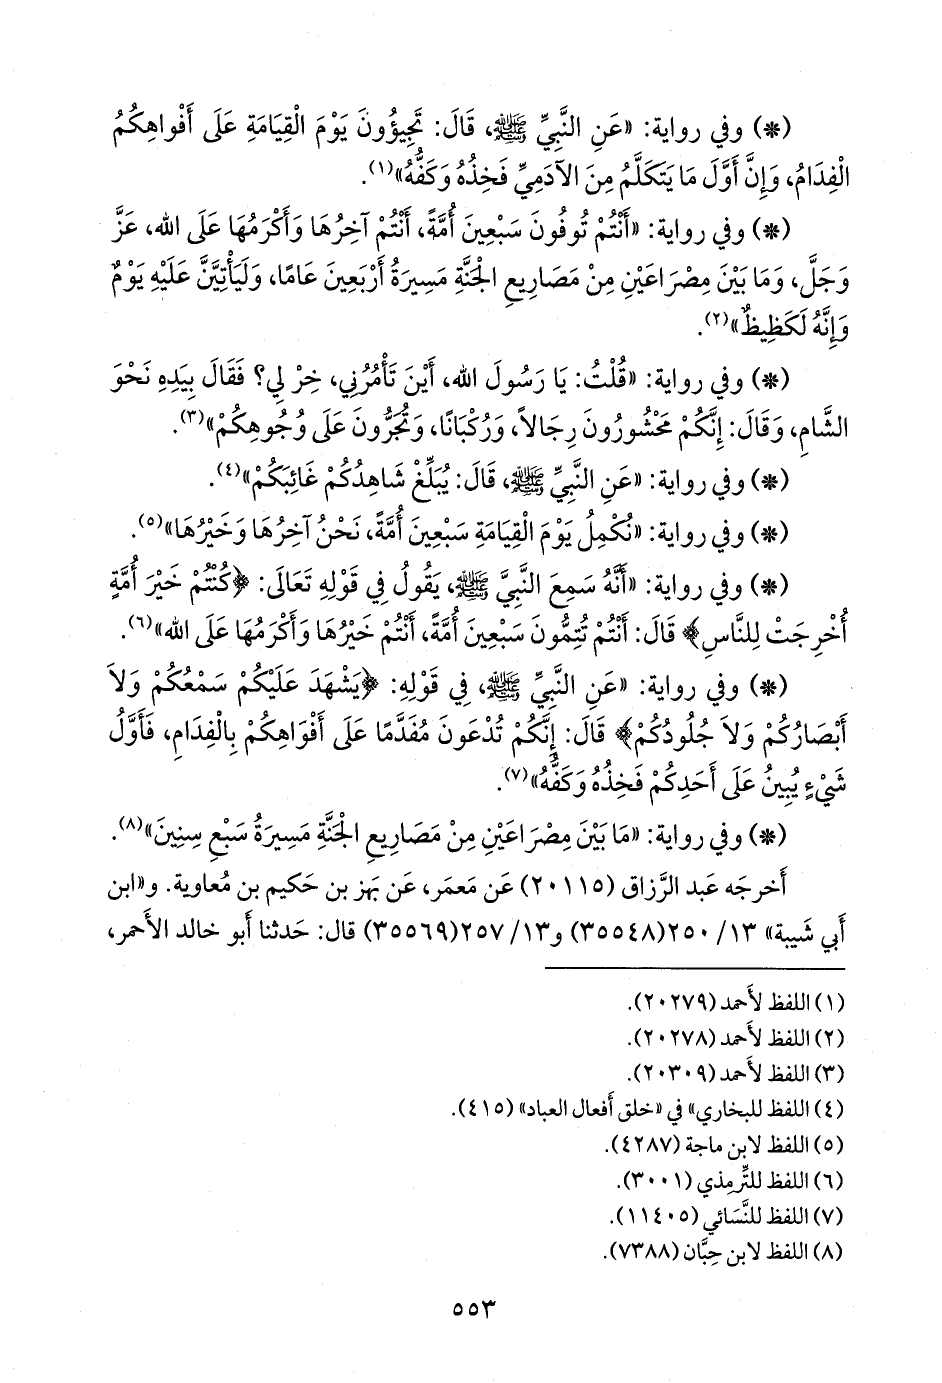 (*) وفي رواية: «عَنِ النَّبِيِّ ﷺ، قَالَ: تَجِيؤُونَ يَوْمَ الْقِيَامَةِ عَلَى أَفْوَاهِكُمُ
الْفِدَامُ، وَإِنَّ أَوَّلَ مَا يَتَكَلَّمُ مِنَ الآدَمِيِّ فَخِذُهُ وَكَفُّهُ»(١).
(*) وفي رواية: «أَنْتُمْ تُوفُونَ سَبْعِينَ أُمَّةً، أَنْتُمْ آخِرُهَا وَأَكْرَمُهَا عَلَى الله، عَزَّ
وَجَلَّ، وَمَا بَيْنَ مِصْرَاعَيْنِ مِنْ مَصَارِيعِ الْجَنَّةِ مَسِيرَةُ أَرْبَعِينَ عَامًا، وَلَيَأْتِيَنَّ عَلَيْهِ يَوْمٌ
وَإِنَّهُ لَكَظِيظٌ»(٢).
(*) وفي رواية: «قُلْتُ: يَا رَسُولَ الله، أَيْنَ تَأْمُرُنِي، خِرْ لِي؟ فَقَالَ بِيَدِهِ نَحْوَ
الشَّامِ، وَقَالَ: إِنَّكُمْ مَحْشُورُونَ رِجَالاً، وَرُكْبَانًا، وَتُجَرُّونَ عَلَى وُجُوهِكُمْ»(٣).
(*) وفي رواية: «عَنِ النَّبِيِّ ﷺ، قَالَ: يُبَلِّغْ شَاهِدُكُمْ غَائِبَكُمْ»(٤).
(*) وفي رواية: «نُكْمِلُ يَوْمَ الْقِيَامَةِ سَبْعِينَ أُمَّةً، نَحْنُ آخِرُهَا وَخَيْرُهَا»(٥).
(*) وفي رواية: «أَنَّهُ سَمِعَ النَّبِيَّ ﷺ، يَقُولُ فِي قَوْلِهِ تَعَالَى: ﴿كُنْتُمْ خَيْرَ أُمَّةٍ
أُخْرِجَتْ لِلنَّاسِ﴾ قَالَ: أَنْتُمْ تُتِمُّونَ سَبْعِينَ أُمَّةً، أَنْتُمْ خَيْرُهَا وَأَكْرَمُهَا عَلَى الله»(٦).
(*) وفي رواية: «عَنِ النَّبِيِّ ﷺ، فِي قَوْلِهِ: ﴿يَشْهَدَ عَلَيْكُمْ سَمْعُكُمْ وَلاَ
أَبْصَارُكُمْ وَلاَ جُلُودُكُمْ﴾ قَالَ: إِنَّكُمْ تُدْعَوْنَ مُفَدَّمًا عَلَى أَفْوَاهِكُمْ بِالْفِدَامِ، فَأَوَّلُ
شَيْءٍ يُبِينُ عَلَى أَحَدِكُمْ فَخِذُهُ وَكَفُّهُ»(٧).
(*) وفي رواية: «مَا بَيْنَ مِصْرَاعَيْنِ مِنْ مَصَارِيعِ الْجَنَّةِ مَسِيرَةُ سَبْعِ سِنِينَ»(٨).
أَخرجَه عَبد الرَّزاق (٢٠١١٥) عَن مَعمَر، عَن بَهز بن حَكيم بن مُعاوية. و«ابن
أَبي شَيبة» ١٣/ ٢٥٠(٣٥٥٤٨) و١٣/ ٢٥٧(٣٥٥٦٩) قال: حَدثنا أَبو خالد الأَحمر،
(١) اللفظ لأَحمد (٢٠٢٧٩).
(٢) اللفظ لأَحمد (٢٠٢٧٨).
(٣) اللفظ لأَحمد (٢٠٣٠٩).
(٤) اللفظ للبخاري» في «خلق أَفعال العباد» (٤١٥).
(٥) اللفظ لابن ماجة (٤٢٨٧).
(٦) اللفظ للتِّرمِذي (٣٠٠١).
(٧) اللفظ للنَّسَائي (١١٤٠٥).
(٨) اللفظ لابن حِبَّان (٧٣٨٨).
٥٥٣